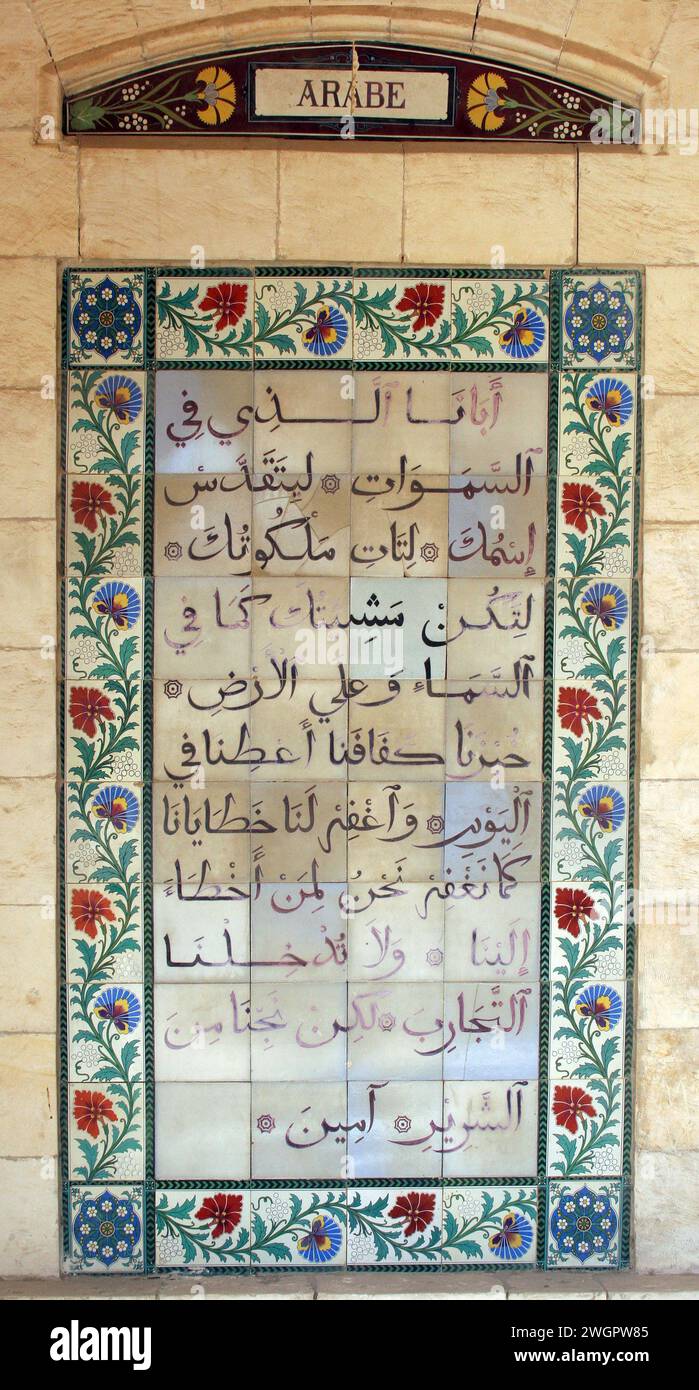 ARABE
أَبَانَا ٱلَّذِي فِي
ٱلسَّمَوَاتِ ۞ لِيَتَقَدَّسْ
إِسْمُكَ ۞ لِتَاتِ مَلْكُوتُكَ ۞
لِتَكُنْ مَشِيئَتُكَ كَمَا فِي
ٱلسَّمَاءِ وَعَلَي الْأَرْضِ ۞
خُبْزَنَا كَفَافَنَا أَعْطِنَا فِي
ٱلْيَوْمِ ۞ وَٱغْفِرْ لَنَا خَطَايَانَا
كَمَا نَغْفِرْ نَحْنُ لِمَنْ أَخْطَاءَ
إِلَيْنَا ۞ وَلَا تُدْخِلْنَا
ٱلتَّجَارِبَ ۞ لَكِنْ نَجِّنَا مِنَ
ٱلشَّرِيْرِ ۞ آمِينَ ۞
alamy
Image ID: 2WGPW85
www.alamy.com